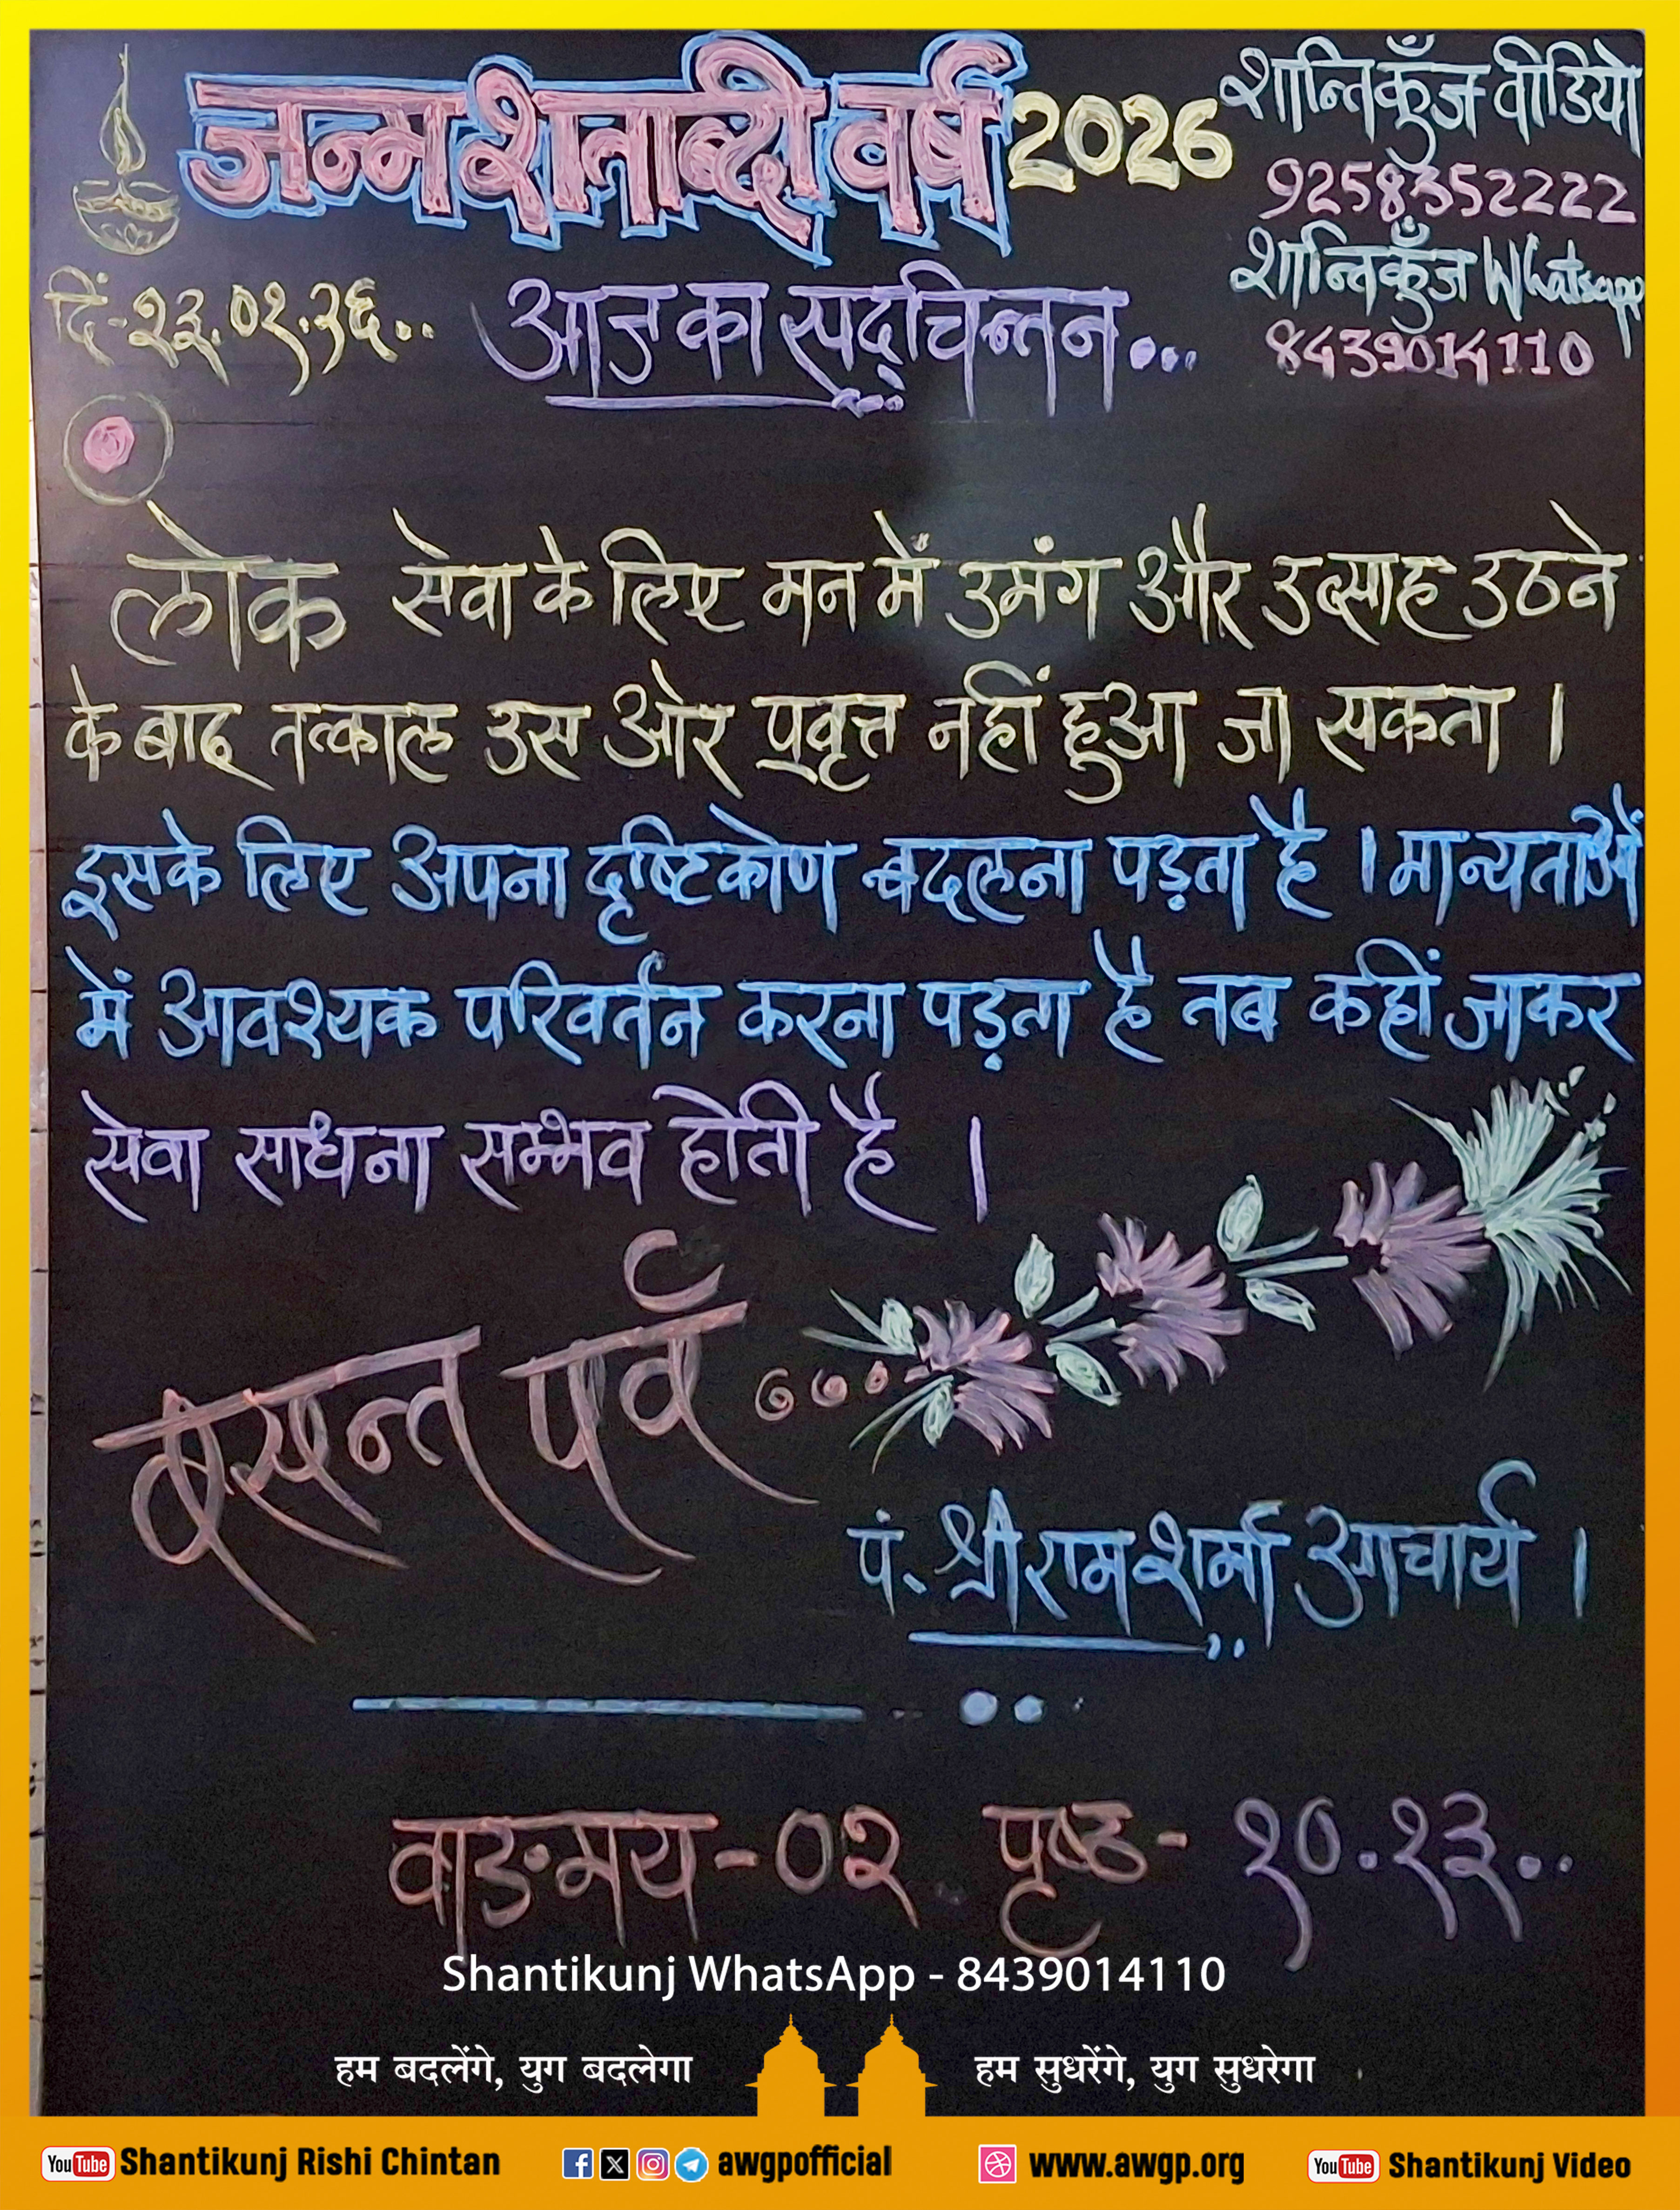 जन्म शताब्दी वर्ष 2026
शान्तिकुँज वीडियो
9258352222
शान्तिकुँज Whatsapp
8439014110
दिं-२३.०१.२६..
आज का सद्चिन्तन...
लोक सेवा के लिए मन में उमंग और उत्साह उठने
के बाद तत्काल उस ओर प्रवृत्त नहीं हुआ जा सकता ।
इसके लिए अपना दृष्टिकोण बदलना पड़ता है । मान्यताओं
में आवश्यक परिवर्तन करना पड़ता है तब कहीं जाकर
सेवा साधना सम्भव होती है ।
बसन्त पर्व...
पं. श्रीराम शर्मा आचार्य ।
वाङमय-०२ पृष्ठ- १०.१३..
Shantikunj WhatsApp - 8439014110
हम बदलेंगे, युग बदलेगा
हम सुधरेंगे, युग सुधरेगा
YouTube Shantikunj Rishi Chintan
awgpofficial
www.awgp.org
YouTube Shantikunj Video